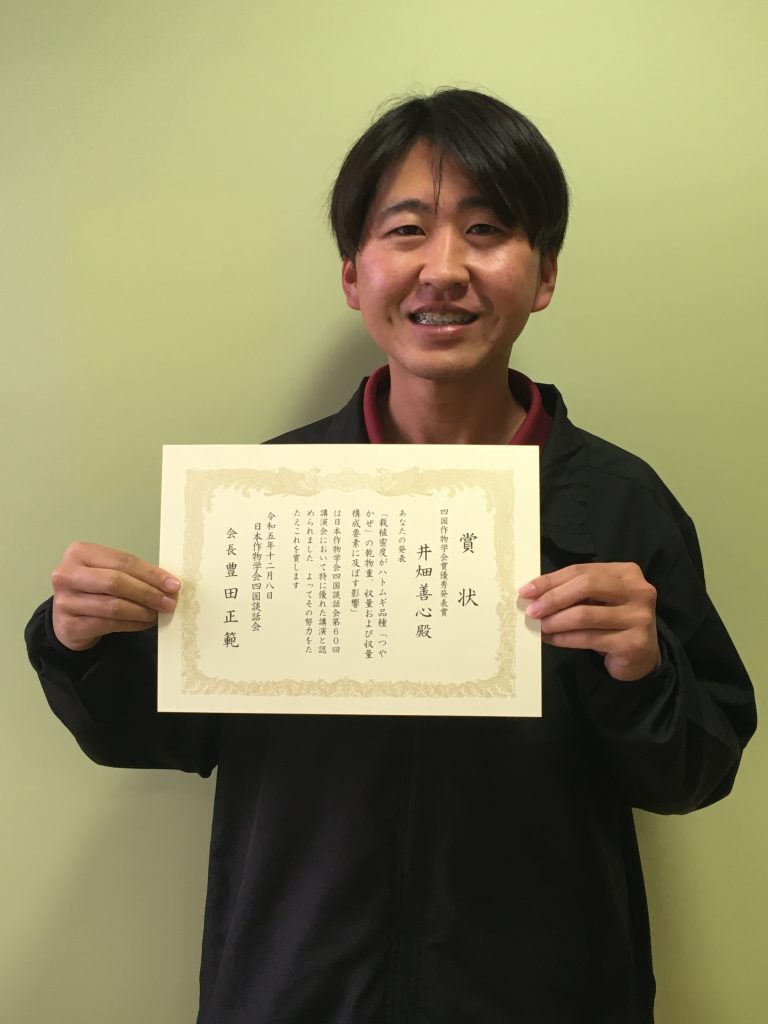 賞状
四国作物学会賞優秀発表賞
井畑善心殿
あなたの発表
「栽植密度がハトムギ品種「つや
かぜ」の乾物重、収量および収量
構成要素に及ぼす影響」
は日本作物学会四国談話会第６０回
講演会において特に優れた講演と認
められました よってその努力をた
たえこれを賞します
令和五年十二月八日
日本作物学会四国談話会
会長豊田正範